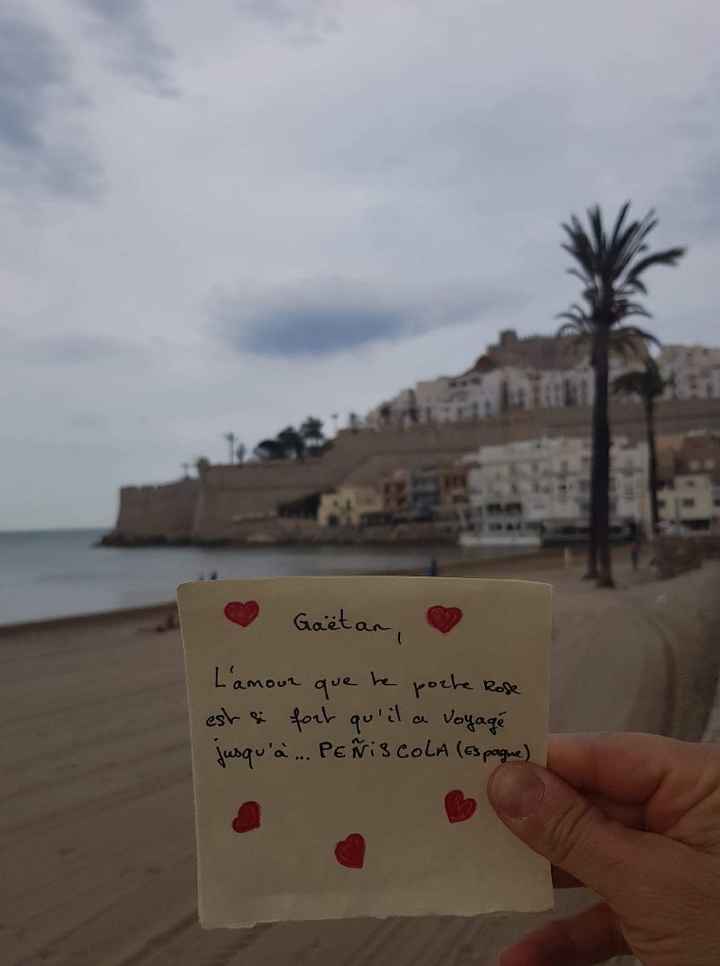 Gaëtan,
L'amour que te porte Rose
est si fort qu'il a voyagé
jusqu'à... PEÑISCOLA (Espagne)